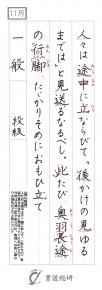 11月
人々は途中に立ならびて、後かげの見ゆる
までは、と見送るなるべし。此たび奥羽長途
の行脚、たゞかりそめにおもひ立て
一般 段級
書道総研